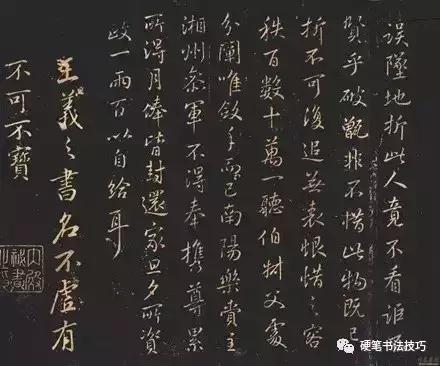 誤墜地折此人竟不看詎不
賢乎破甑非不惜此物既已
折不可復追無哀恨惜之容
秩百數十萬一聽伯樹父處
分闌唯斂手而已南陽樂賞主
湘州參軍不得奉攜尊累
所得月俸皆封還家旦夕所資
政一兩百以自給耳
王羲之書名不虛有
不可不寶
硬笔书法技巧